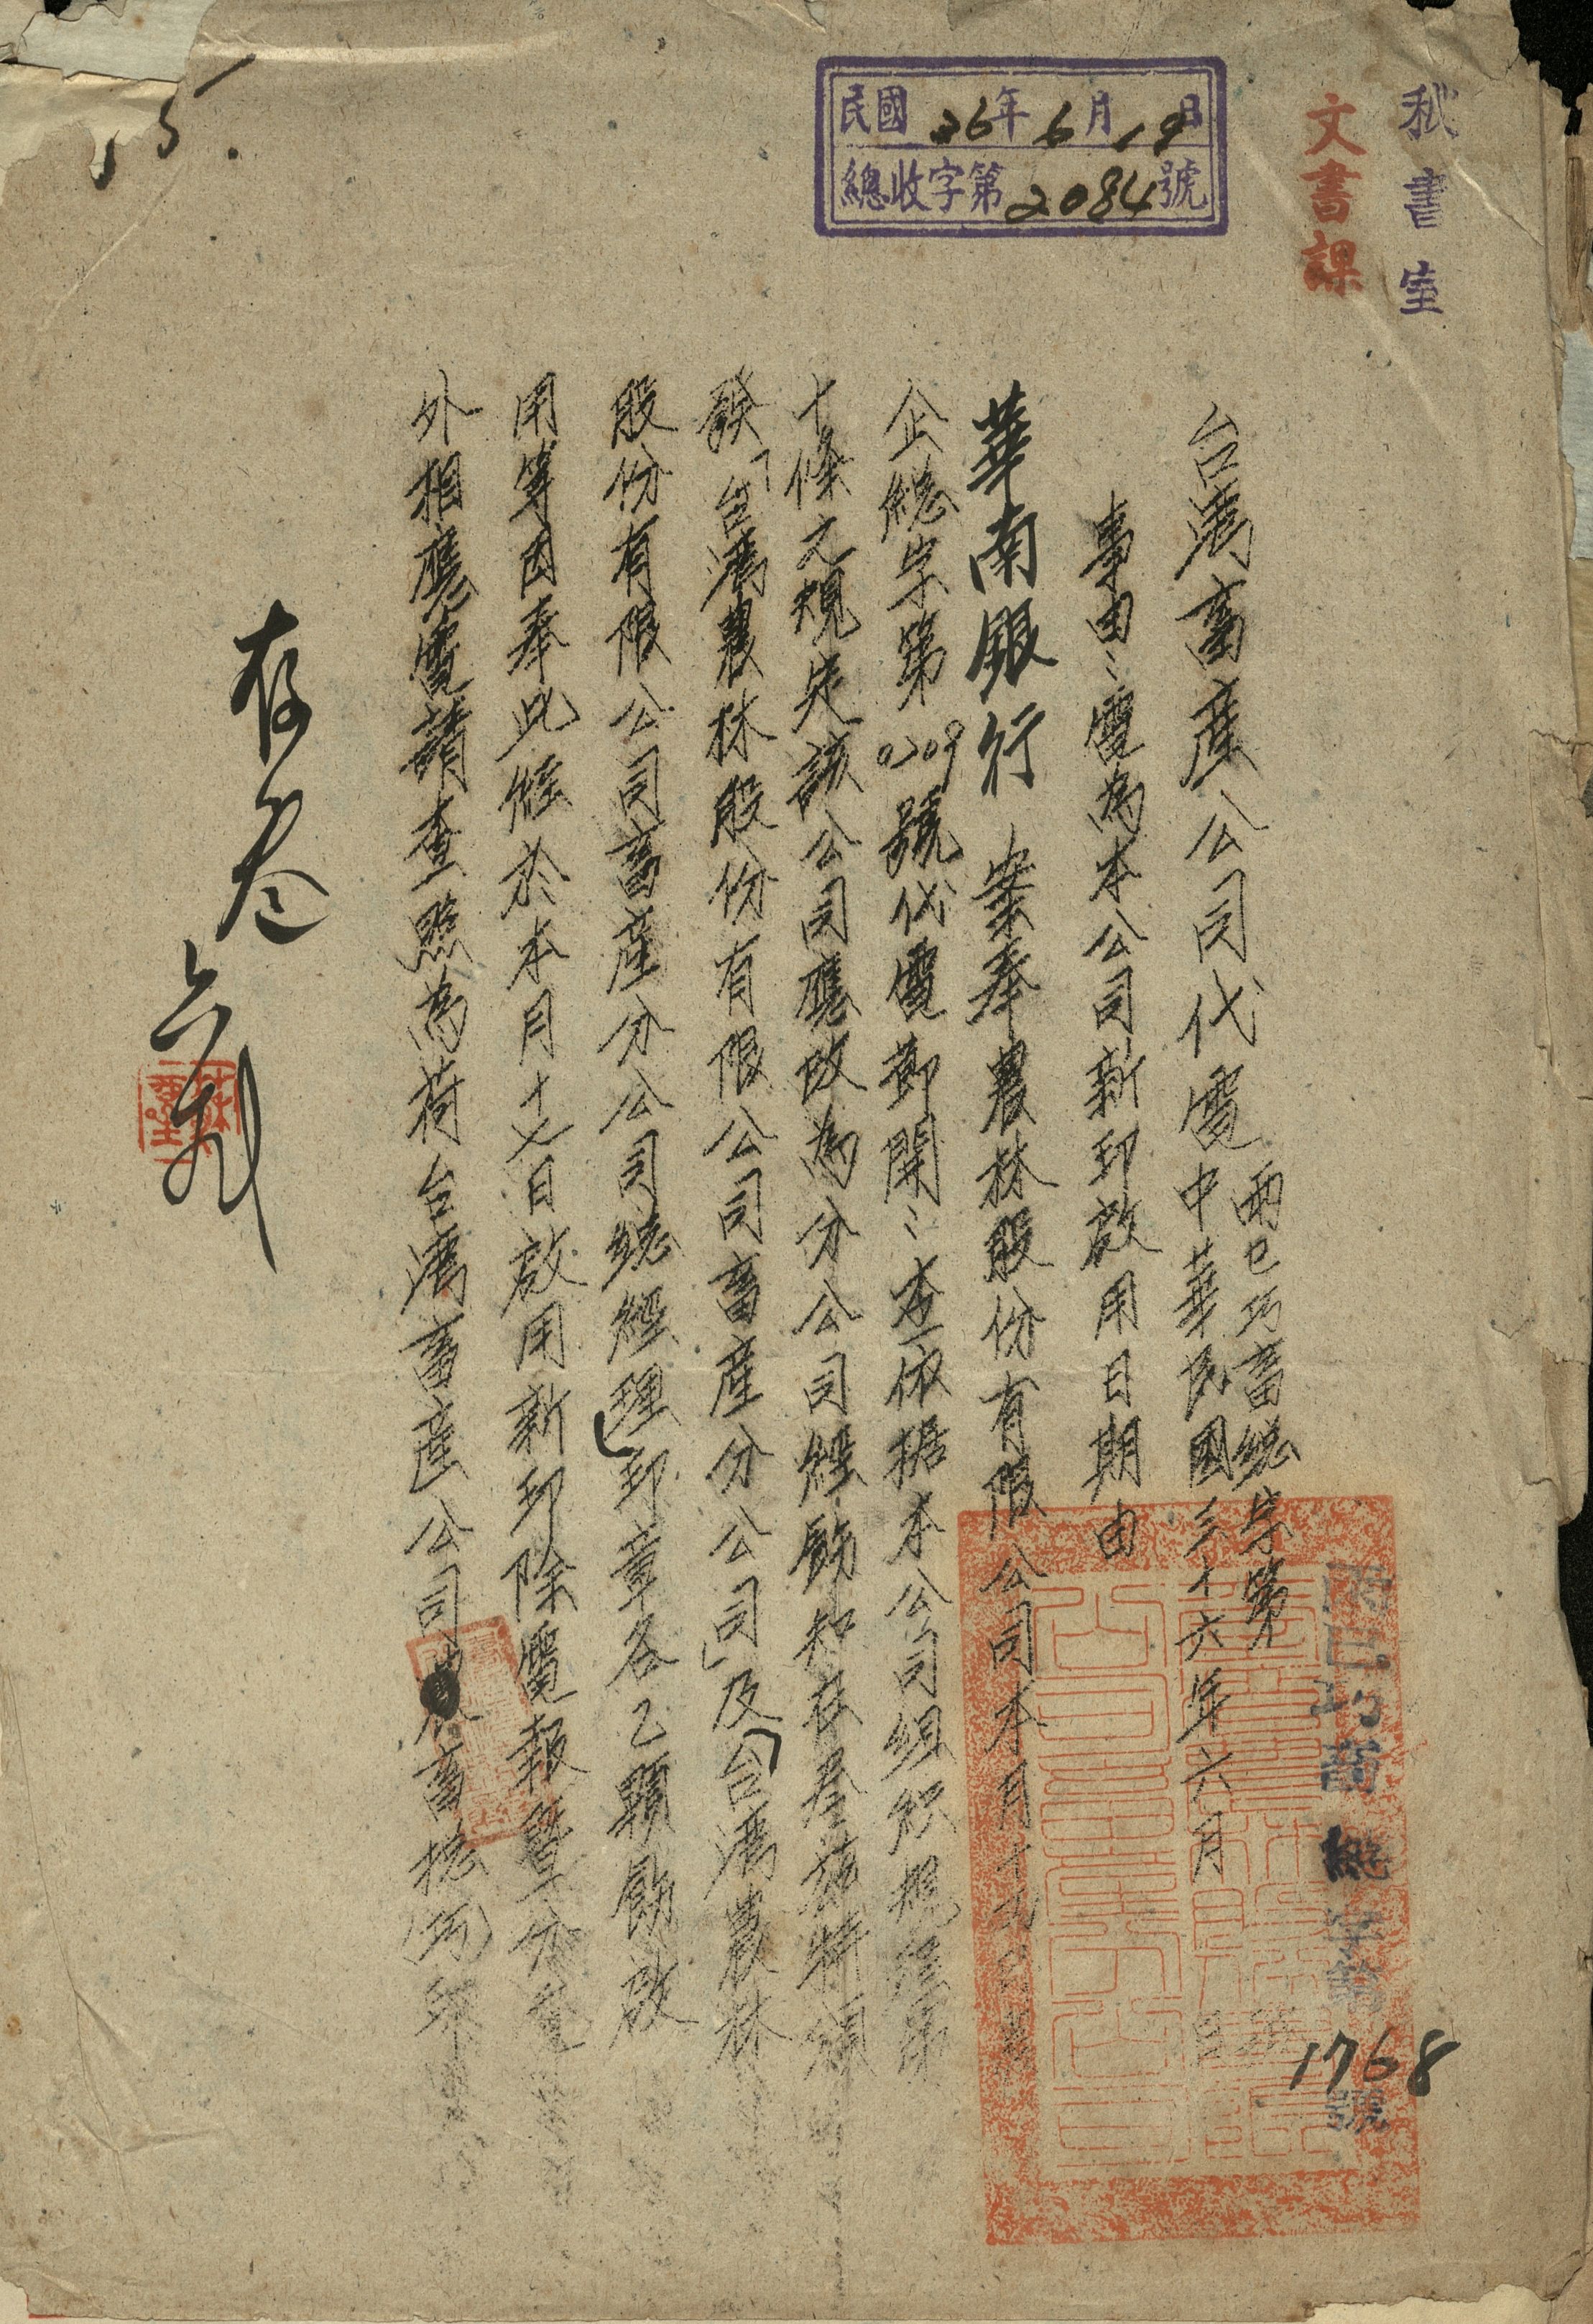 秘書室
文書課
民國36年6月19日
總收字第2084號
台灣畜產公司代電
雨巳巧畜總字第
1768
號
中華民國三十六年六月 日
事由:電為本公司新印啟用日期由
華南銀行 案奉農林股份有限公司本月十
企總字第0209號代電鄭開:查依據本公司組織規程第
十條之規定該公司應改為分公司經飭知在卷茲特頒
發「台灣農林股份有限公司畜產分公司」及「台灣農林
股份有限公司畜產分公司總經理」印章各乙顆飭啟
用等因奉此經於本月十七日啟用新印除電報暨分電
外相應電請查照為荷台灣畜產公司 畜總(巧)印
存卷